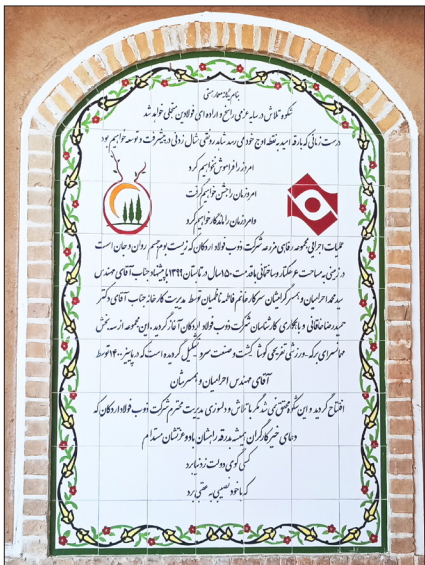 بنام یگانه معمار هستی
شکوه تلاش در سایه عزمی راسخ و اراده ای فولادین متجلی خواهد شد
درست زمانی که بارقه امید به نقطه اوج خود می رسد شاهد رونقی مثال زدنی در پیشرفت و توسعه خواهیم بود
امروز را فراموش نخواهیم کرد
امروزمان را جشن خواهیم گرفت
و امروزمان را ماندگار خواهیم کرد
عملیات اجرایی مجموعه رفاهی مزرعه شرکت ذوب فولاد اردکان که زیست بوم هم روان و جان است
در زمینی به مساحت هکتار و ساختمانی با قدمت ۱۵۰ سال در تابستان ۱۳۹۹ با پیشنهاد جناب آقای مهندس
سید محمد احرامیان و همسر گرامیشان سرکار خانم فاطمه ناظمیان توسط مدیریت کارخانه جناب آقای دکتر
حمیدرضا خاقانی و با همکاری کارشناسان شرکت ذوب فولاد اردکان آغاز گردید. این مجموعه از سه بخش
مهمانسرای برکه - ورزشی تفریحی کوشک - کشت و صنعت سرو تشکیل گردیده است که در پاییز ۱۴۰۰ توسط
آقای مهندس احرامیان و همسرشان
افتتاح گردید و این شکوه محقق نمی شد مگر با تلاش و دلسوزی مدیریت محترم شرکت ذوب فولاد اردکان که
دعای خیر کارگران همیشه بدرقه راهشان باد و عزتشان مستدام
کسی گوی دولت ز دنیا برد
که با خود نصیبی به عقبی برد